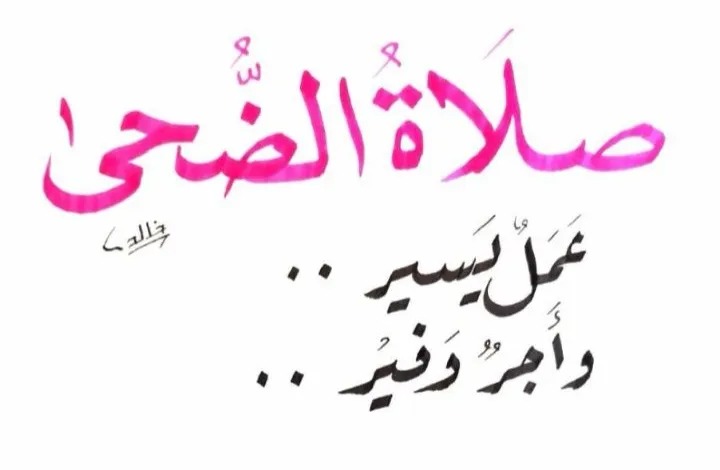 صَلَاةُ الضُّحىٰ
خالد
عَمَلٌ يَسير ..
وأَجرٌ وَفيرْ ..